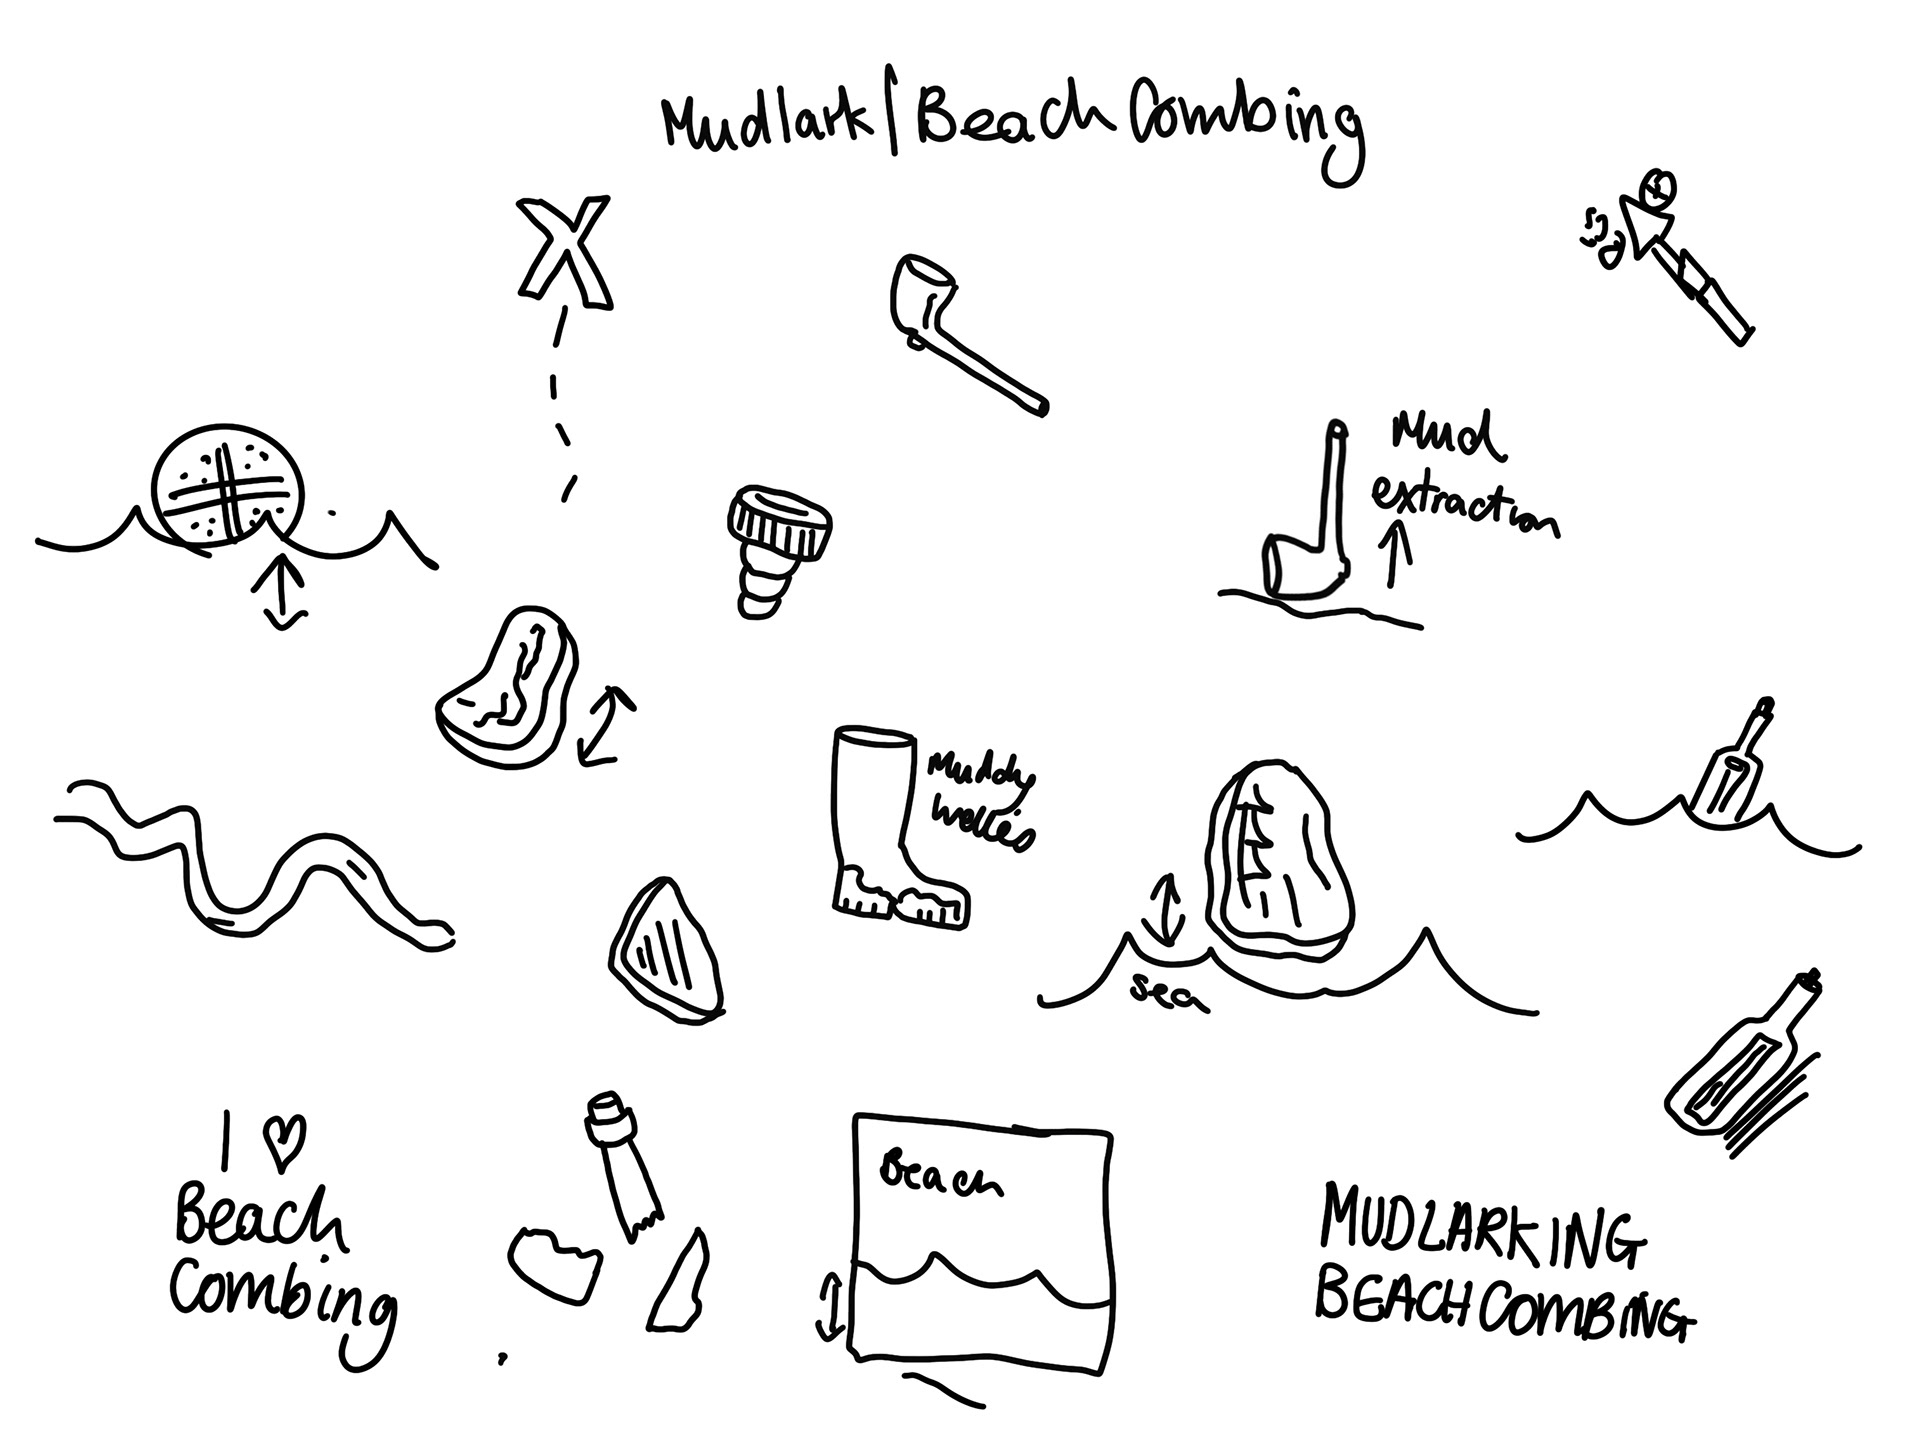 Mudlark/Beach Combing
Mud
extraction
Muddy
wellies
sea
I ♥
Beach
Combing
Beach
MUDLARKING
BEACHCOMBING